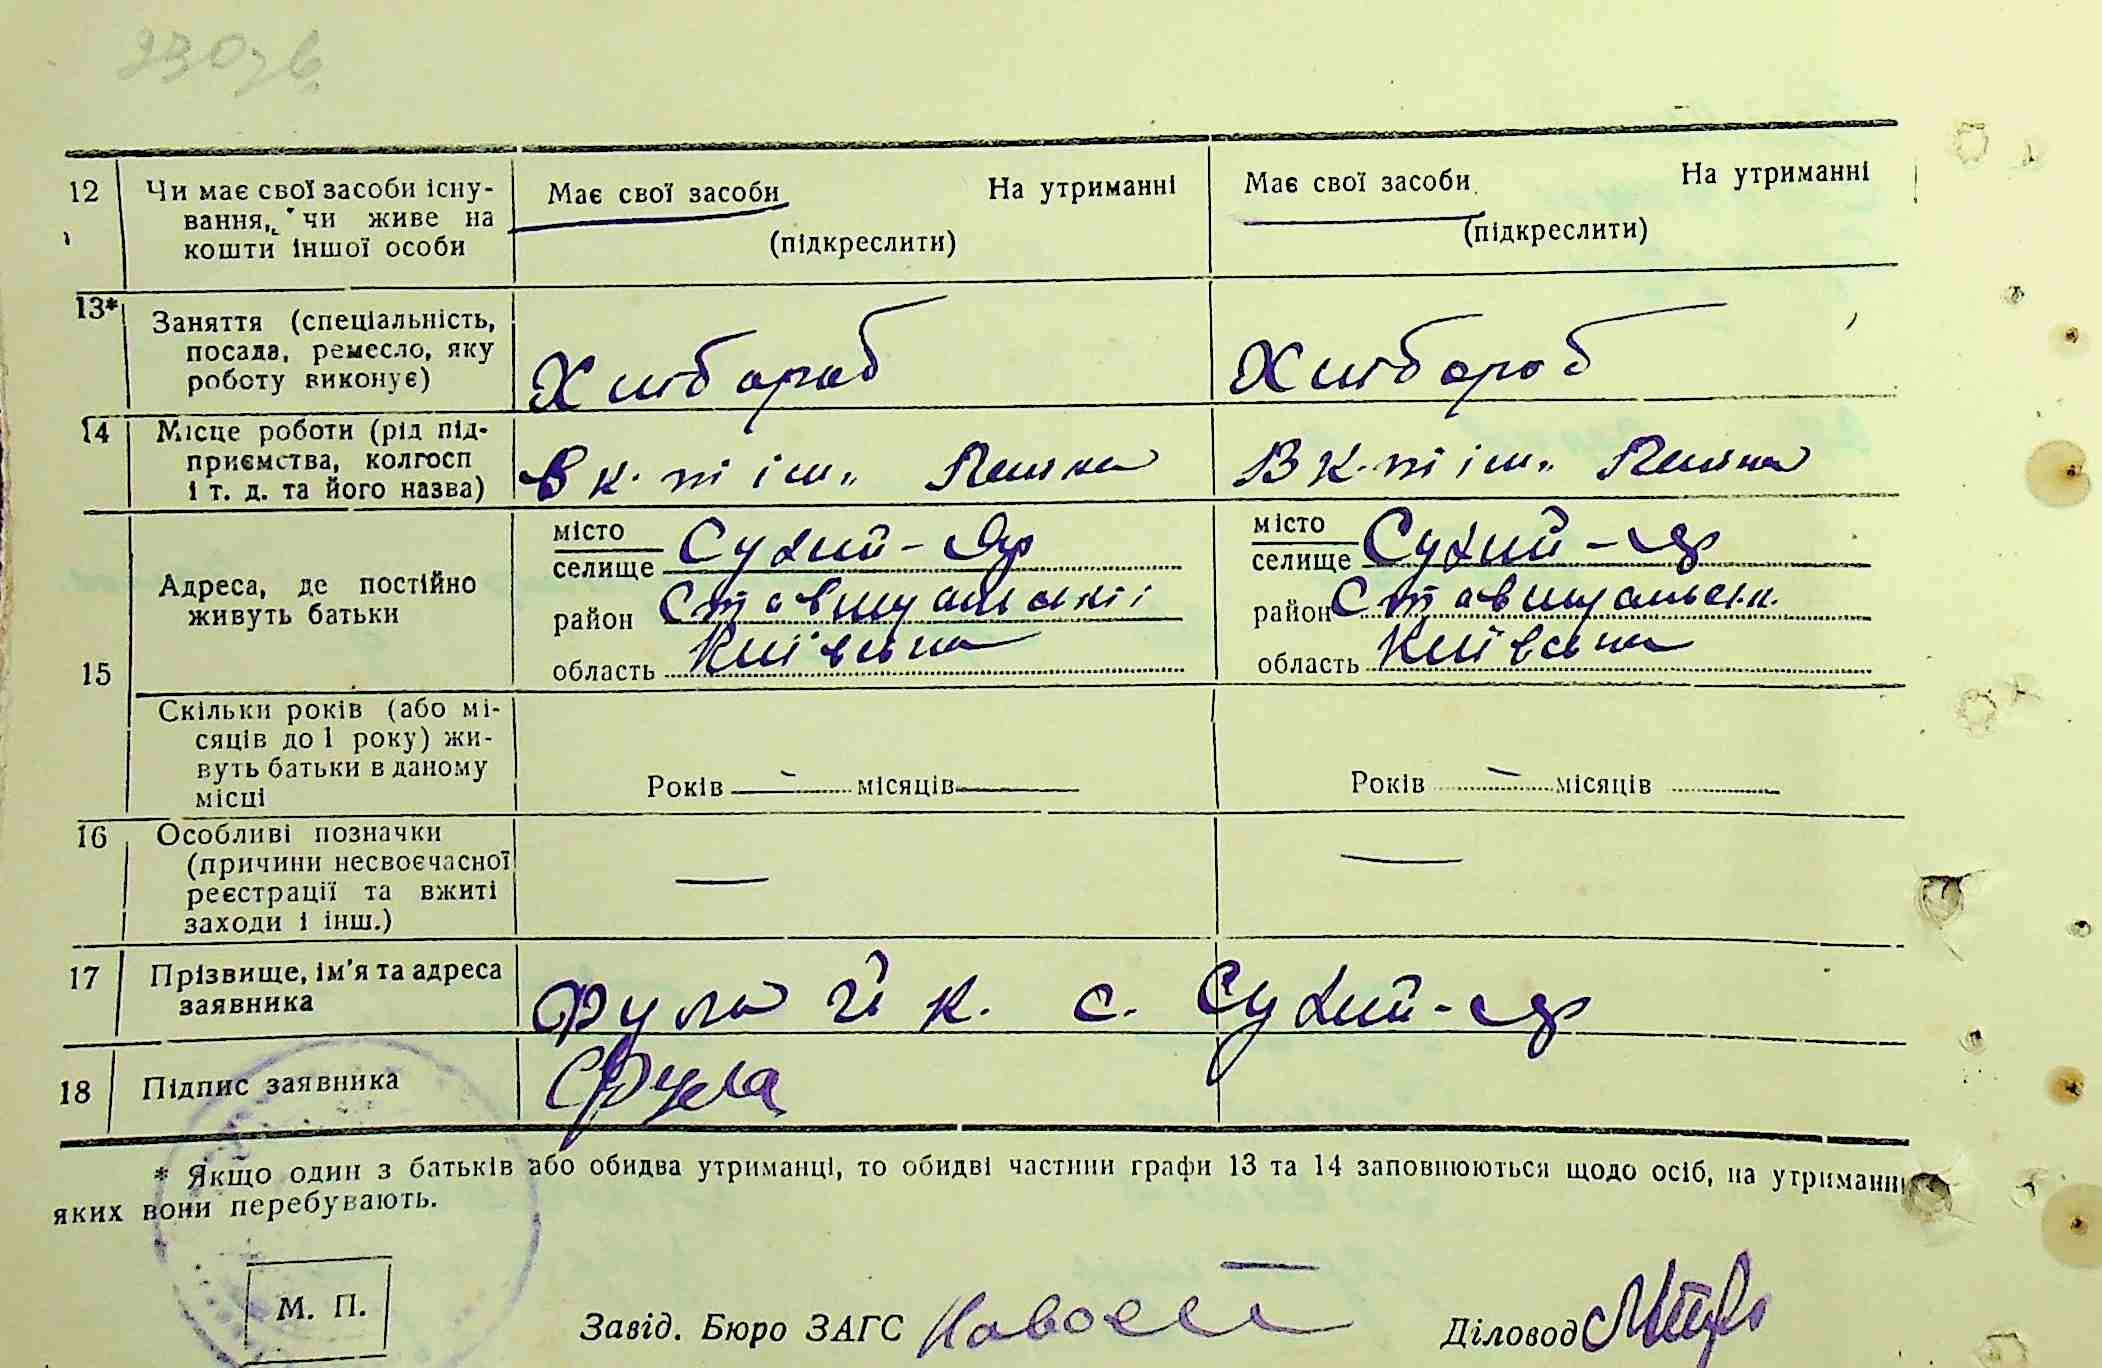 12 Чи має свої засоби існу-
вання, чи живе на
кошти іншої особи
Має свої засоби На утриманні
(підкреслити)
Має свої засоби На утриманні
(підкреслити)
13* Заняття (спеціальність,
посада, ремесло, яку
роботу виконує)
Хлібороб
Хлібороб
14 Місце роботи (рід під-
приємства, колгосп
і т. д. та його назва)
В к-пі ім.
В к-пі ім.
15 Адреса, де постійно
живуть батьки
місто
селище Сухий-Яр
район Ставищанський
область Київська
місто
селище Сухий-яр
район Ставищанськ.
область Київська
Скільки років (або мі-
сяців до 1 року) жи-
вуть батьки в даному
місці
Років — місяців —
Років — місяців
16 Особливі позначки
(причини несвоєчасної
реєстрації та вжиті
заходи і інш.)
—
—
17 Прізвище, ім'я та адреса
заявника
Фула Й К. с. Сухий-яр
18 Підпис заявника
Фула
* Якщо один з батьків або обидва утриманці, то обидві частини графи 13 та 14 заповнюються щодо осіб, на утриманні
яких вони перебувають.
М. П.
Завід. Бюро ЗАГС
Діловод